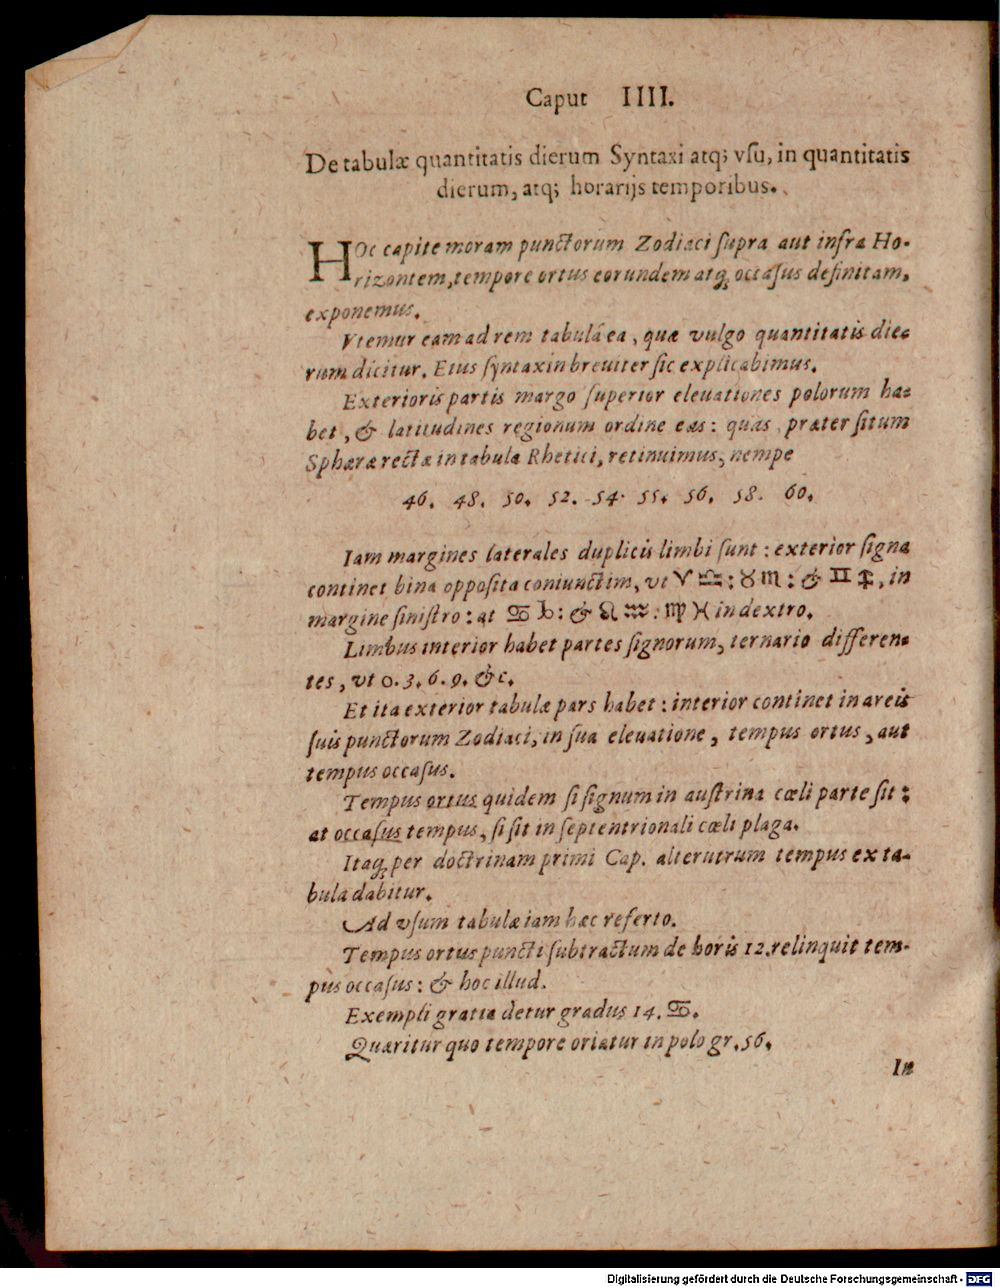 Caput IIII.
De tabulæ quantitatis dierum Syntaxi atq; vſu, in quantitatis
dierum, atq; horarijs temporibus.
HOc capite moram punctorum Zodiaci ſupra aut infra Ho-
rizontem, tempore ortus eorundem atq; occaſus definitam,
exponemus.
Vtemur eam ad rem tabulâ ea, quæ vulgo quantitatis die-
rum dicitur. Eius ſyntaxin breuiter ſic explicabimus.
Exterioris partis margo ſuperior eleuationes polorum ha-
bet, & latitudines regionum ordine eas: quas, præter ſitum
Sphæræ rectæ in tabula Rhetici, retinuimus, nempe
46. 48. 50. 52. 54. 55. 56. 58. 60.
Iam margines laterales duplicis limbi ſunt: exterior ſigna
continet bina oppoſita coniunctim, vt ♈ ♎: ♉ ♏: & ♊ ♐, in
margine ſiniſtro: at ♋ ♑: & ♌ ♒: ♍ ♓ in dextro.
Limbus interior habet partes ſignorum, ternario differen-
tes, vt 0. 3. 6. 9. &c.
Et ita exterior tabulæ pars habet: interior continet in areis
ſuis punctorum Zodiaci, in ſua eleuatione, tempus ortus, aut
tempus occaſus.
Tempus ortus quidem ſi ſignum in auſtrina cœli parte ſit:
at occaſus tempus, ſi ſit in ſeptentrionali cœli plaga.
Itaq; per doctrinam primi Cap. alterutrum tempus ex ta-
bula dabitur.
Ad vſum tabulæ iam hæc referto.
Tempus ortus puncti ſubtractum de horis 12. relinquit tem-
pus occaſus: & hoc illud.
Exempli gratia detur gradus 14. ♋.
Quæritur quo tempore oriatur in polo gr. 56.
In
Digitalisierung gefördert durch die Deutsche Forschungsgemeinschaft - DFG